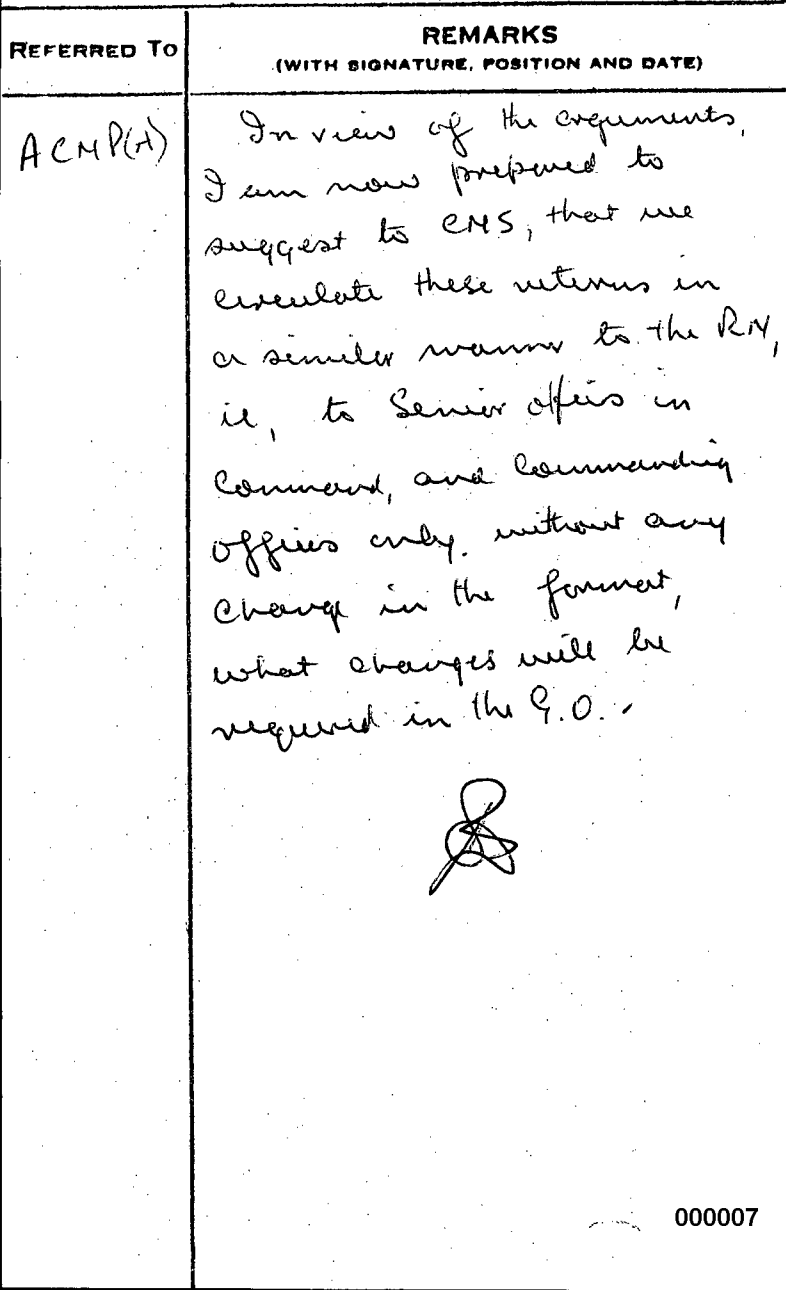 REFERRED TO
REMARKS
(WITH SIGNATURE, POSITION AND DATE)
ACNP(A)
In view of the arguments,
I am now prepared to
suggest to CNS, that we
circulate these returns in
a similar manner to the RN,
ie, to Senior officers in
Command, and Commanding
officers only. without any
change in the format,
what changes will be
required in the G.O.
000007